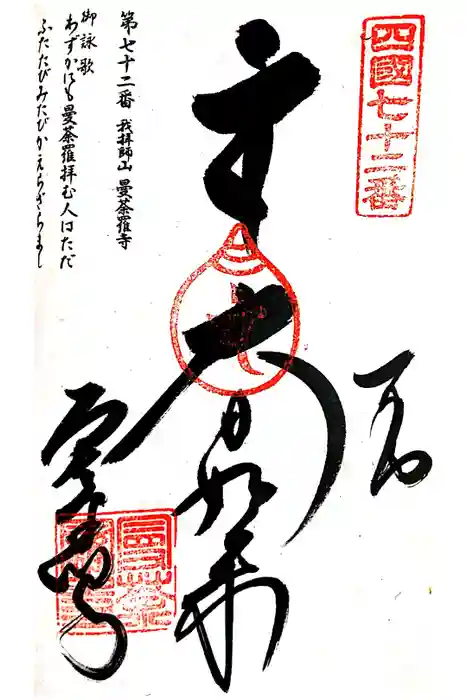 四國七十二番
大日如来
曼荼羅寺
第七十二番 我拝師山 曼荼羅寺
御詠歌
わずかにも曼荼羅拝む人はただ
ふたたびみたびかえらざらまし